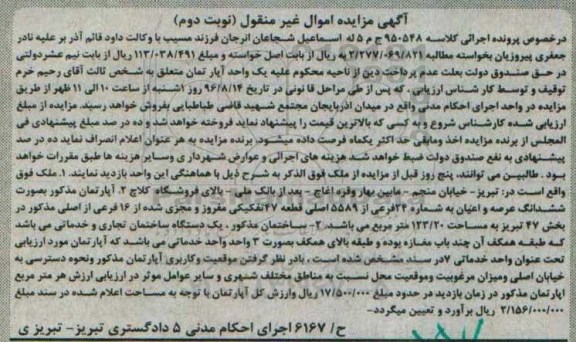 آگهی مزایده اموال غیر منقول (نوبت دوم)
درخصوص پرونده اجرائی کلاسه ۹۵۰۵۴۸ ج م ۵ له اسماعیل شجاعان اثرجان فرزند مسیب با وکالت داود قائم آذر بر علیه نادر
جعفری پیروزیان بخواسته مطالبه ۲/۲۷۷/۰۶۹/۸۲۱ به ریال از بابت اصل خواسته و مبلغ ۱۱۳/۰۳۸/۴۹۱ ریال از بابت نیم عشردولتی
در حق صندوق دولت بعلت عدم پرداخت دین از ناحیه محکوم علیه یک واحد آپار تمان متعلق به شخص ثالث آقای رحیم خرم
توقیف و توسط کار شناس ارزیابی، که پس از طی مراحل قا نونی در تاریخ ۹۶/۸/۱۴ روز ۱شنبه از ساعت ۱۰ الی ۱۱ ظهر از طریق
مزایده در واحد اجرای احکام مدنی واقع در میدان آذربایجان مجتمع شهید قاضی طباطبایی بفروش خواهد رسید. مزایده از مبلغ
ارزیابی شده کارشناس شروع و به کسی که بالاترین قیمت را پیشنهاد نماید فروخته خواهد شد و ده در صد مبلغ پیشنهادی فی
المجلس از برنده مزایده اخذ ومابقی حد اکثر یکماه فرصت داده میشود. برنده مزایده به هر عنوان اعلام انصراف نماید ده در صد
پیشنهادی به نفع صندوق دولت ضبط خواهد شد هزینه های اجرائی و عوارض شهرداری و سایر هزینه ها طبق مقررات خواهد
بود. طالبین می توانند، پنج روز قبل از مزایده از ملک فوق الذکر به شرح ذیل با هماهنگی این واحد بازدید نمایند. ۱. ملک فوق
واقع است در: تبریز- خیابان منجم - مابین بهار وقره اغاج - بعد از بانک ملی - بالای فروشگاه کلاج ۲. آپارتمان مذکور بصورت
ششدانگ عرصه و اعیان به شماره ۲۴فرعی از ۵۵۸۹ اصلی قطعه ۴۷تفکیکی مفروز و مجزی شده از ۱۶ فرعی از اصلی مذکور در
بخش ۴۷ تبریز به مساحت ۱۲۳/۲۰ متر مربع می باشد. ۲- ساختمان مذکور، یک دستگاه ساختمان تجاری و خدماتی می باشد
که طبقه همکف آن چند باب مغازه و طبقه بالای همکف بصورت ۳ واحد واحد خدماتی می باشد که آپارتمان مورد ارزیابی
تحت عنوان واحد خدماتی ۷در سند مشخص شده است. بادر نظر گرفتن موقعیت وکاربری آپارتمان مذکور ونحوه دسترسی به
خیابان اصلی ومیزان مرغوبیت وموقعیت محل نسبت به مناطق مختلف شهری و سایر عوامل موثر در ارزیابی ارزش هر متر مربع
اپارتمان مذکور در زمان بازدید در حدود مبلغ ۱۷/۵۰۰/۰۰۰ ریال وارزش کل آپارتمان با توجه به مساحت اعلام شده در سند مبلغ
۲/۱۵۶/۰۰۰/۰۰۰ ریال برآورد و تعیین میگردد-
ح/ ۶۱۶۷ اجرای احکام مدنی ۵ دادگستری تبریز- تبریز ی